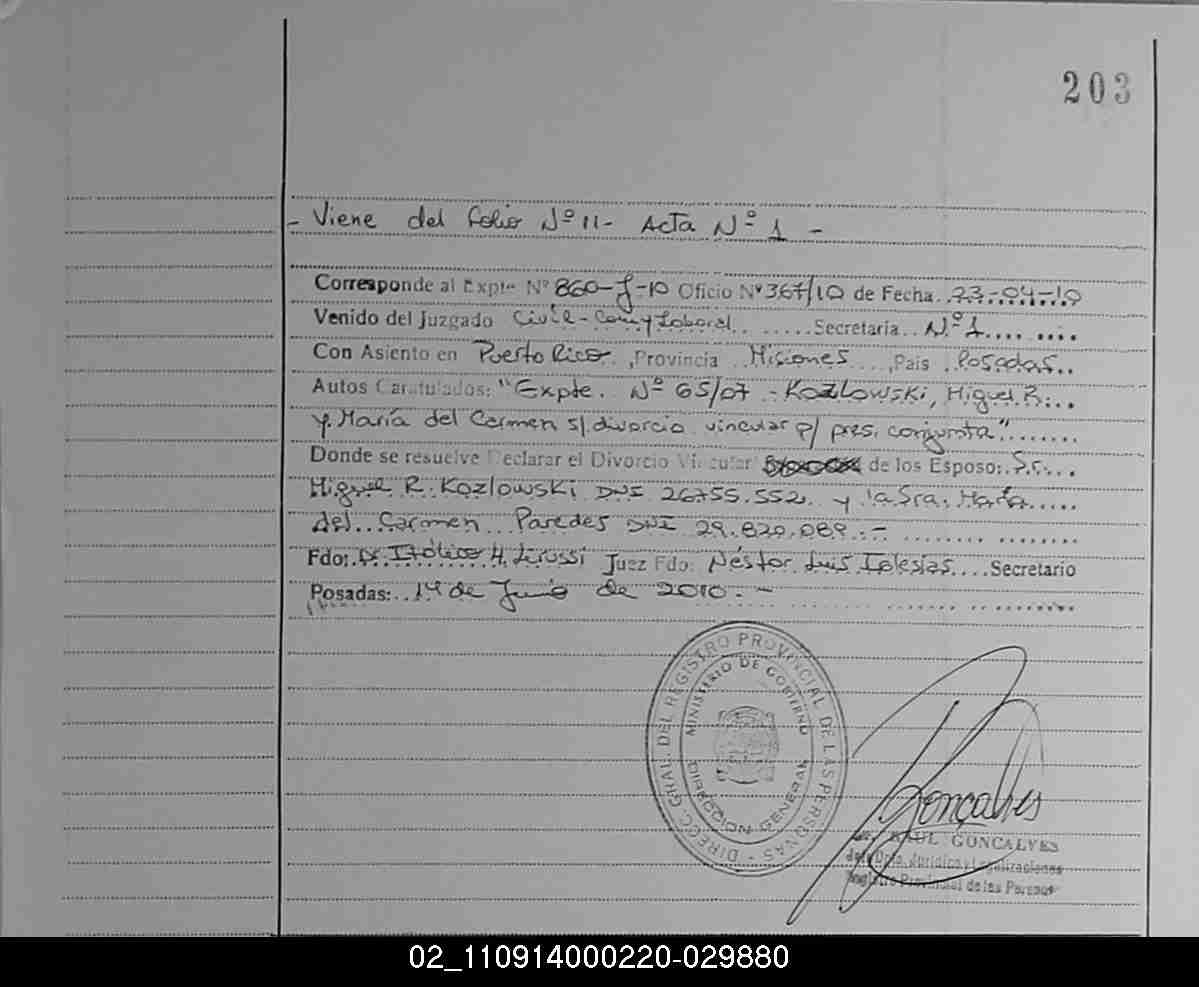 203
- Viene del folio Nº 11- Acta Nº 1 -
Corresponde al Expte Nº 860-J-10 Oficio Nº 367/10 de Fecha 23-04-10
Venido del Juzgado Civil-Com y Laboral Secretaria Nº 1
Con Asiento en Puerto Rico, Provincia Misiones, Pais Posadas
Autos Caratulados: "Expte. Nº 65/07 - Kozlowski, Miguel R.
y María del Carmen s/divorcio vincular p/ pres. conjunta"
Donde se resuelve Declarar el Divorcio Vincular de los Esposo: Sr.
Miguel R. Kozlowski DNI 26755.552 y la Sra. María
del Carmen Paredes DNI 29.820.089.-
Fdo: Dr. Itálico H. Juez Fdo: Néstor Luis Iglesias Secretario
Posadas: 14 de Junio de 2010.-
DIREC. GRAL. DEL REGISTRO PROVINCIAL DE LAS PERSONAS -
MINISTERIO DE GOBIERNO
DIRECCION GENERAL
Gonçalves
RAUL GONCALVES
Jefe Dpto. Jurídico y Legalizaciones
Registro Provincial de las Personas
02_110914000220-029880